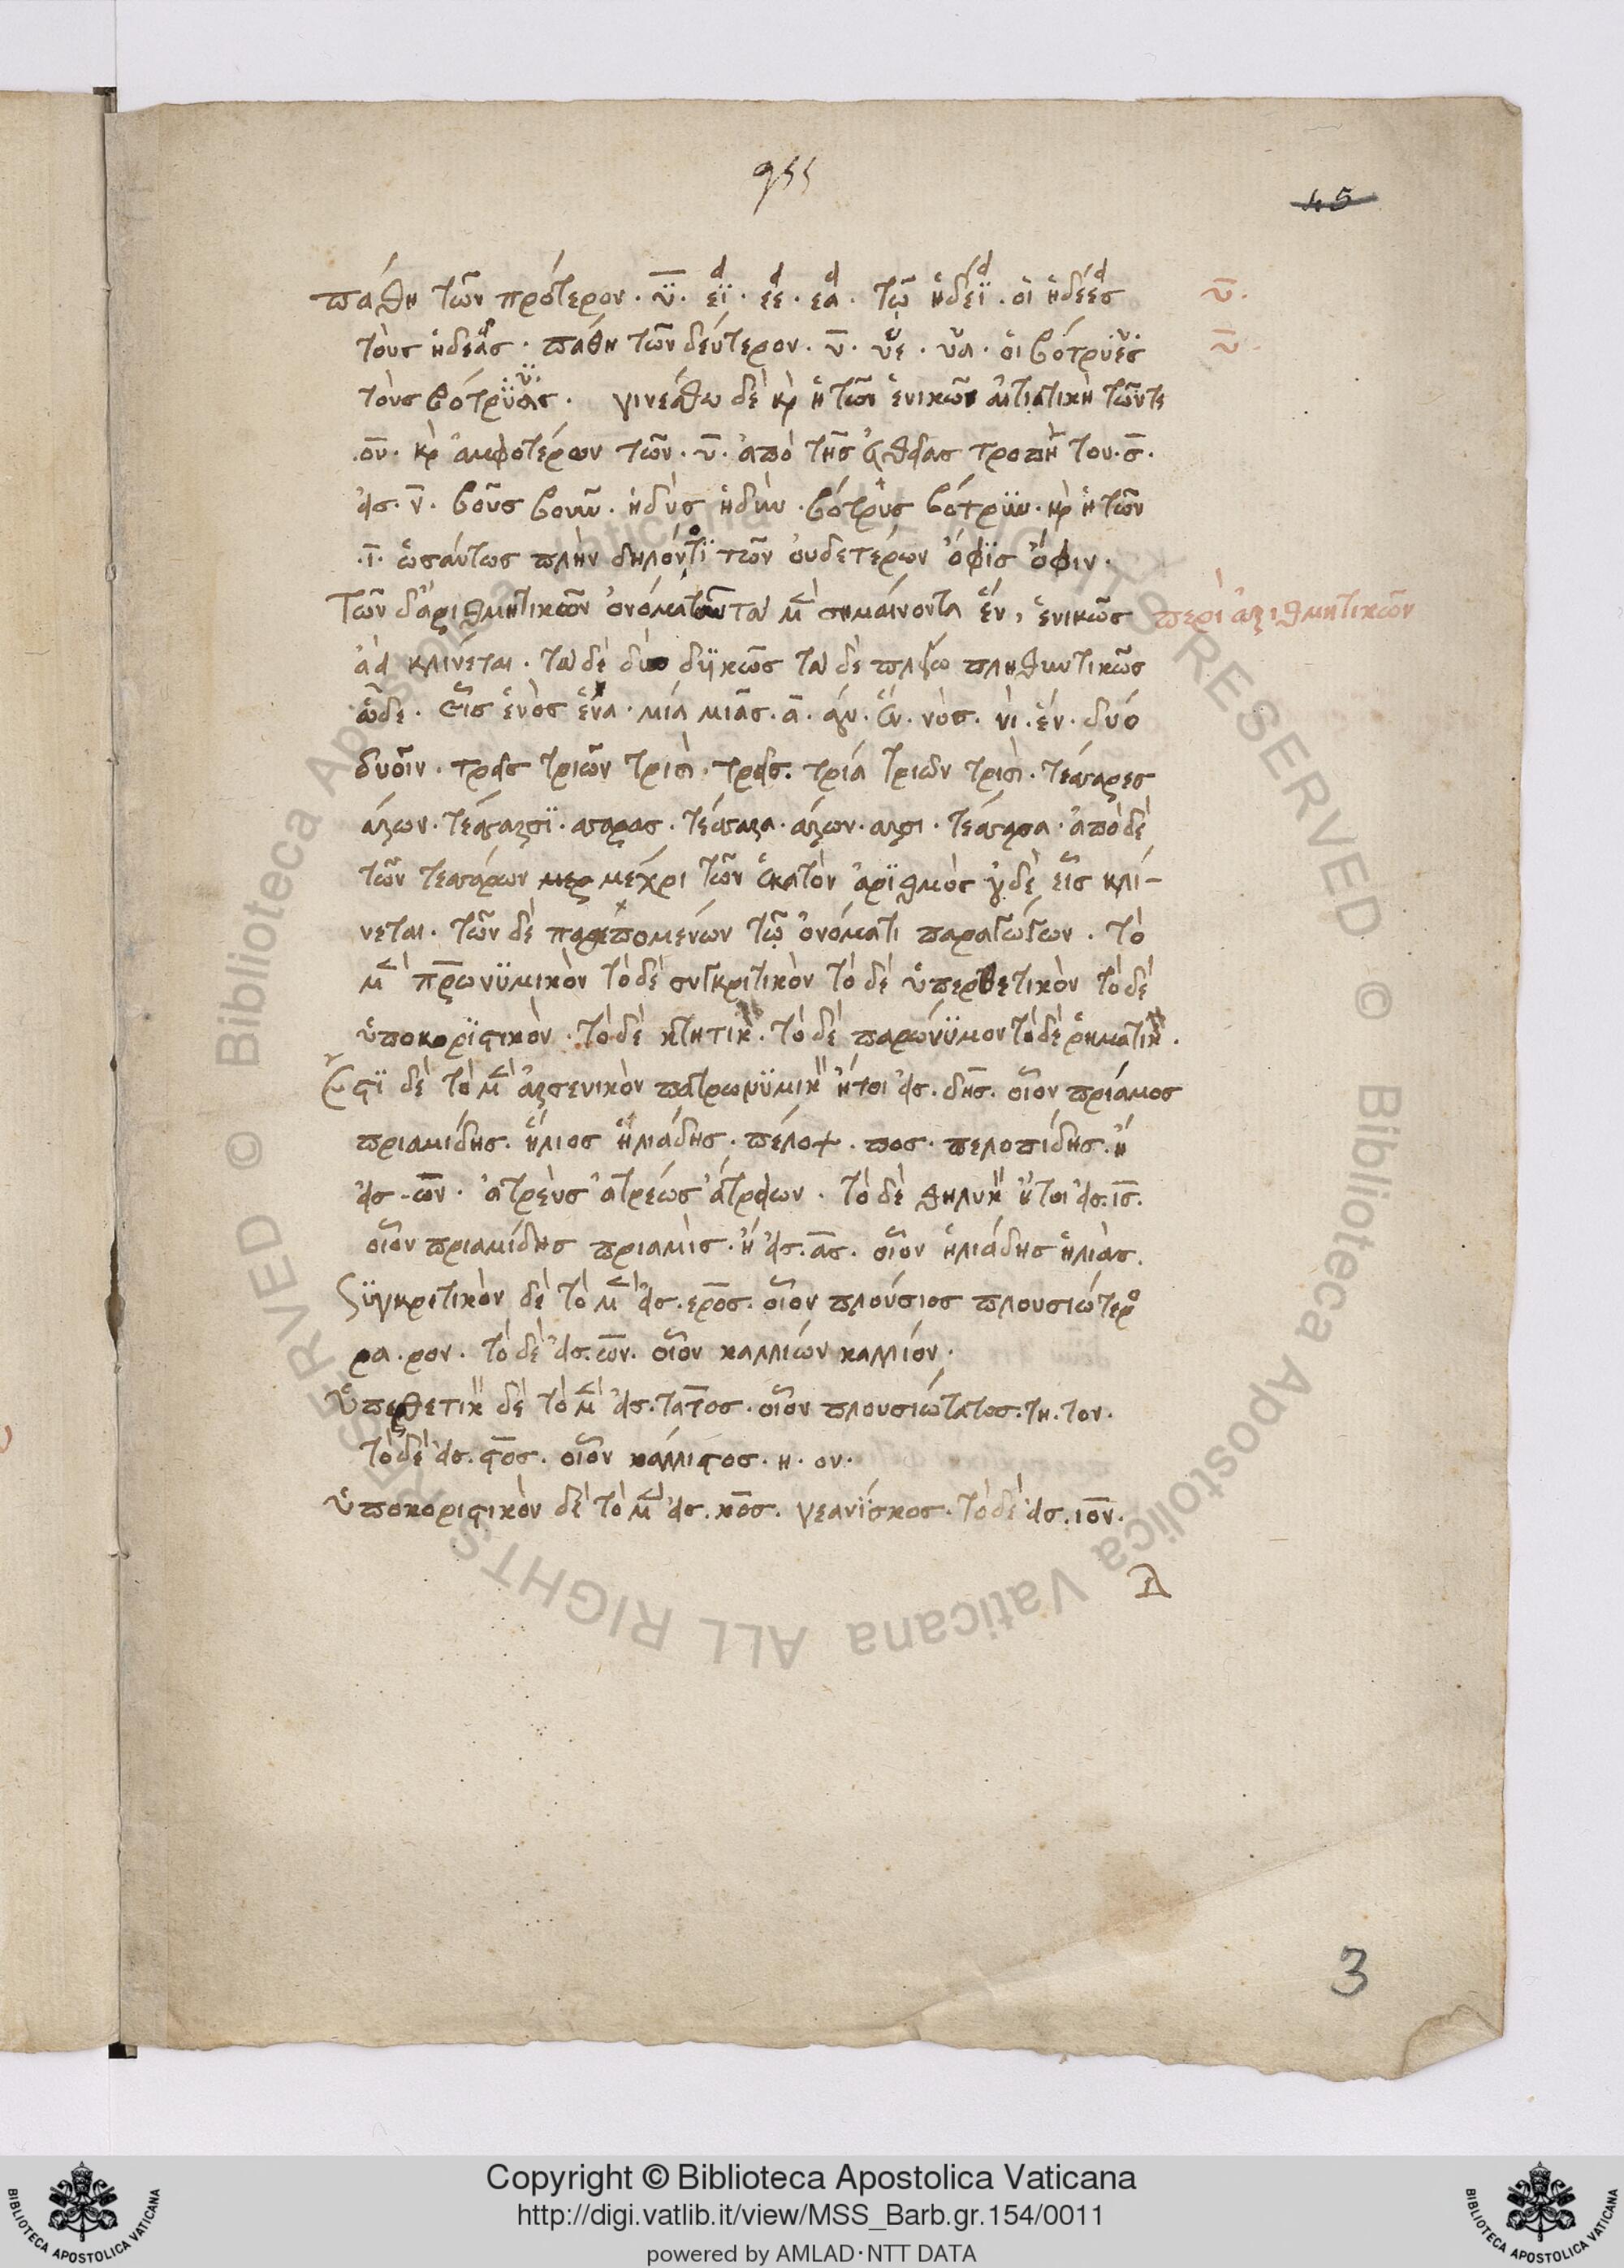 955
45
πάθη τῶν πρότερον · ϋ · εϊ · εε · εα · τῶ ἡδέϊ · οἱ ἡδέες
ῡ ·
τοὺς ἡδεάς · πάθη τῶν δεύτερον · ῡ · υε · υα · οἱ βότρυες
ῡ ·
τοὺς βότρϋας · γινέσθω δὲ καὶ ἡ τῶν ἑνικῶν αἰτιατικὴ τῶν τε
ον · καὶ ἀμφοτέρων τῶν · ῡ · ἀπὸ τῆς εὐθείας τροπῇ του · ς ·
εἰς · ν̄ · βοῦς βοῦν · ἡδὺς ἡδὺν · βότρυς βότρϋν · καὶ ἡ τῶν
· ῑ · ὡσάυτως πλὴν δηλονότϊ τῶν ὀυδετέρων ὄφϊς ὄφιν ·
Τῶν δ' ἀριθμητικῶν ὀνομάτων τὰ μὲν σημαίνοντα ἕν, ἑνικῶς
περὶ ἀριθμητικῶν
ἀεὶ κλίνεται · τὰ δὲ δύο δϋικῶς τὰ δὲ πλείω πληθυντικῶς
ὧδε · εἷς ἑνὸς ἕνα · μία μιᾶς · ᾶ · αν · ἓν · νὸς · νὶ · ἕν · δύο
δυοῖν · τρεῖς τριῶν τρισὶ · τρεῖς · τρία τριῶν τρισὶ · τέσσαρες
άρων · τέσσαρσϊ · σσαρας · τέσσαρα · άρων · αρσι · τέσσαρα · ἀπὸ δὲ
τῶν τεσσάρων μερ μέχρι τῶν ἑκατὸν ἀρϊθμὸς οὐδὲ εἷς κλί-
νεται · τῶν δὲ παρεπομένων τῷ ὀνόματι παραγώγων · τὸ
μὲν πρωνϋμικὸν τὸ δὲ συγκριτικὸν τὸ δὲ ὑπερθετικὸν τὸ δὲ
ὑποκορϊστικὸν · τὸ δὲ κτητικὸν · τὸ δὲ παρώνϋμον τὸ δὲ ῥηματικὸν ·
Ἔστϊ δὲ τὸ μὲν ἀρσενικὸν πατρωνϋμικὸν ἤτοι εἰς · δης · οἷον πρίαμος
πριαμίδης · ἥλιος ἡλιάδης · πέλοψ · πος · πελοπίδης · ἢ
εἰς · ων · ἀτρεὺς ἀτρέως ἀτρείων · τὸ δὲ θηλυκὸν ἤτοι εἰς · ις ·
οἷον πριαμίδης πριαμὶς · ἢ εἰς · ας · οἷον ἡλιάδης ἡλιὰς ·
Συγκριτικὸν δὲ τὸ μὲν εἰς · ερος · οἷον πλούσιος πλουσιώτερο
ρα · ρον · τὸ δὲ εἰς · ων · οἷον καλλίων κάλλιόν ·
Ὑπερθετικὸν δὲ τὸ μὲν εἰς · τατος · οἷον πλουσιώτατος · τη · τον ·
τὸ δὲ εἰς · στος · οἷον κάλλιστος · η · ον ·
Ὑποκοριστικὸν δὲ τὸ μὲν εἰς · κος · νεανίσκος · τὸ δὲ εἰς · ιον ·
3
Copyright © Biblioteca Apostolica Vaticana
http://digi.vatlib.it/view/MSS_Barb.gr.154/0011
powered by AMLAD·NTT DATA
BIBLIOTECA APOSTOLICA VATICANA
BIBLIOTECA APOSTOLICA VATICANA
© Biblioteca Apostolica Vaticana ALL RIGHTS RESERVED
© Biblioteca Apostolica Vaticana ALL RIGHTS RESERVED